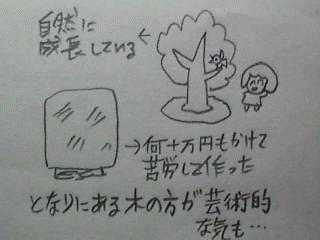 自然に
成長している
何十万円もかけて
苦労して作った
となりにある木の方が芸術的
な気も…